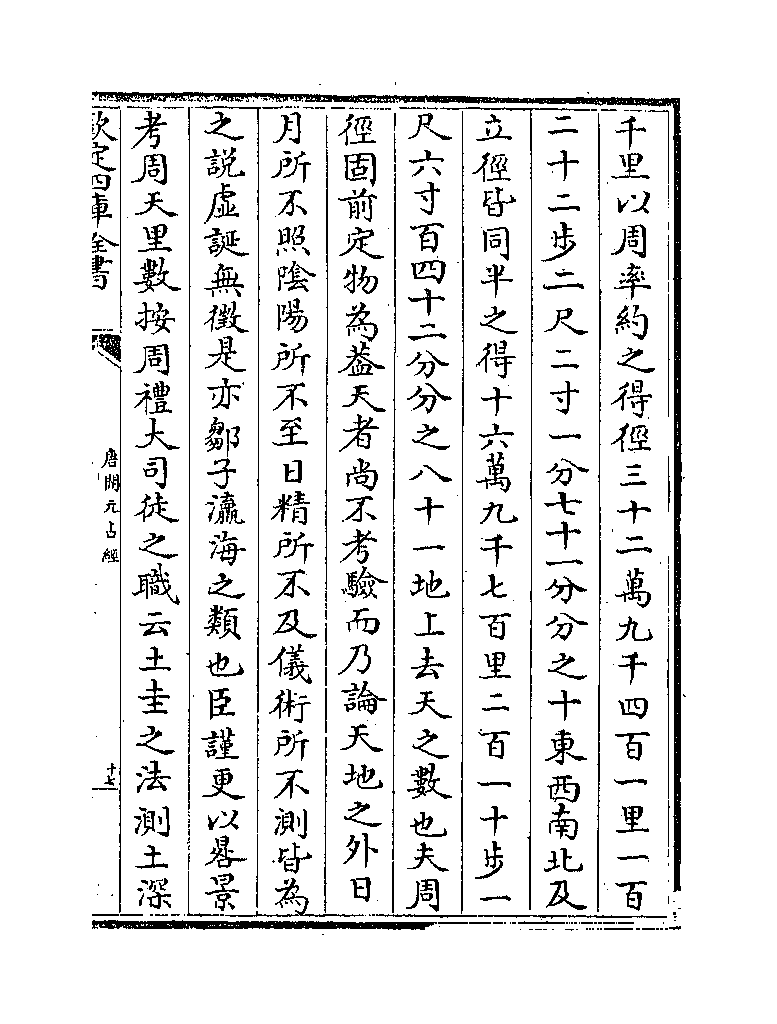 千里以周率約之得徑三十二萬九千四百一里一百
二十二步二尺二寸一分七十一分分之十東西南北及
立徑皆同半之得十六萬九千七百里二百一十步一
尺六寸百四十二分分之八十一地上去天之數也夫周
徑固前定物為蓋天者尚不考驗而乃論天地之外日
月所不照陰陽所不至日精所不及儀術所不測皆為
之説虛誕無徵是亦鄒子瀛海之類也臣謹更以晷景
考周天里數按周禮大司徒之職云土圭之法測土深
欽定四庫全書
唐開元占經
十七